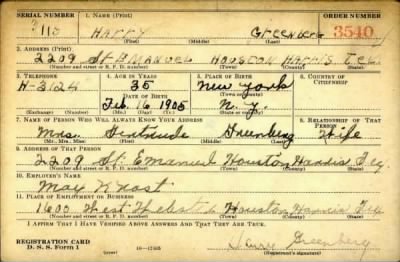 SERIAL NUMBER 1. NAME (Print) ORDER NUMBER
113 HARRY GREENBERG 3540
(First) (Middle) (Last)
2. ADDRESS (Print)
2209 St. EMANUEL HOUSTON HARRIS TEX
(Number and street or R. F. D. number) (Town) (County) (State)
3. TELEPHONE 4. AGE IN YEARS 5. PLACE OF BIRTH 6. COUNTRY OF CITIZENSHIP
H-3124 35 New York
DATE OF BIRTH (Town) (County)
Feb. 16 1905 N. Y.
(Exchange) (Number) (Mo.) (Day) (Yr.) (State or country)
7. NAME OF PERSON WHO WILL ALWAYS KNOW YOUR ADDRESS 8. RELATIONSHIP OF THAT PERSON
Mrs. Gertrude Greenberg Wife
(Mr., Mrs., Miss) (First) (Middle) (Last)
9. ADDRESS OF THAT PERSON
2209 St. Emanuel Houston Harris Tex
(Number and street or R. F. D. number) (Town) (County) (State)
10. EMPLOYER'S NAME
Max
11. PLACE OF EMPLOYMENT OR BUSINESS
1600 West Houston Harris Tex
(Number and street or R. F. D. number) (Town) (County) (State)
I AFFIRM THAT I HAVE VERIFIED ABOVE ANSWERS AND THAT THEY ARE TRUE.
REGISTRATION CARD
D. S. S. Form 1 Harry Greenberg
(over) (Registrant's signature)